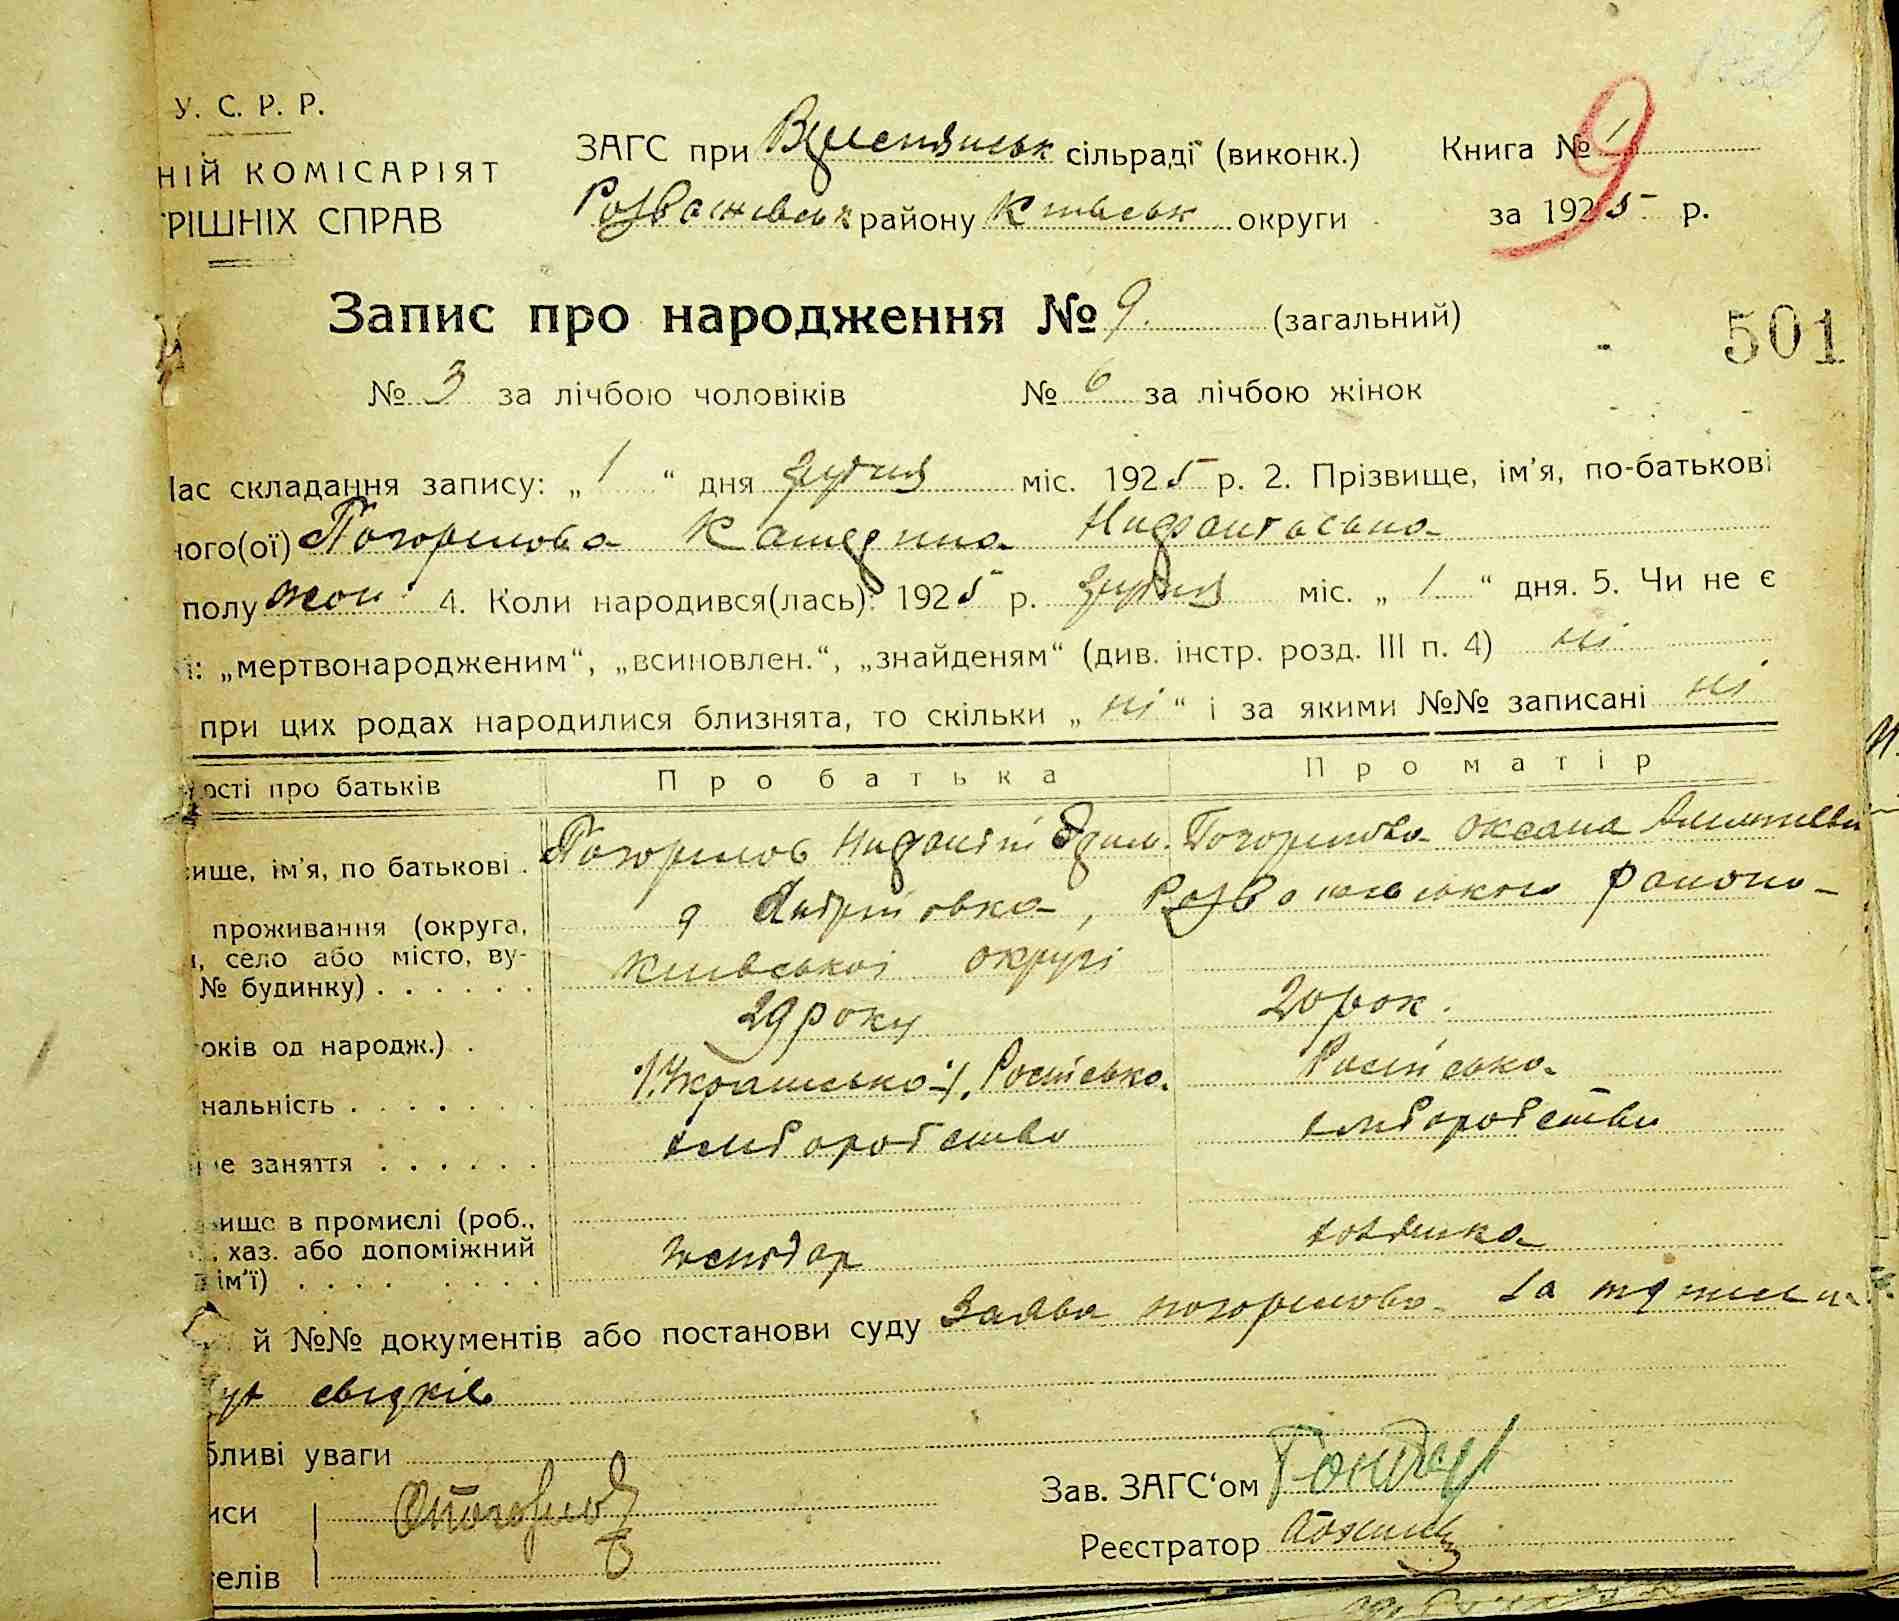 У. С. Р. Р.
НІЙ КОМІСАРІЯТ
РІШНІХ СПРАВ
ЗАГС при сільраді (виконк.)
Розважівськ району Київськ округи
Книга № 1
9
за 1925 р.
Запис про народження № 9 (загальний)
501
№ 3 за лічбою чоловіків № 6 за лічбою жінок
Час складання запису: „ 1 “ дня грудня міс. 1925 р. 2. Прізвище, ім'я, по-батькові
ного(ої) Погорилова Катерина
полу жон 4. Коли народився(лась): 1925 р. грудня міс. „ 1 “ дня. 5. Чи не є
„мертвонародженим“, „всиновлен.“, „знайденям“ (див. інстр. розд. III п. 4) ні
при цих родах народилися близнята, то скільки „ ні “ і за якими №№ записані ні
ості про батьків Про батька Про матір
ище, ім'я, по батькові . Погорилов Погорилова Оксана
проживання (округа, д Андріївка, Розважівського району
, село або місто, ву- Київської округі
№ будинку) . . . . . .
оків од народж.) . 29 року 20 рок.
нальність . . . . . . . Українська Російська Російська
не заняття . . . . . . хліборобство хліборобство
ище в промислі (роб.,
хаз. або допоміжний господар
ім'ї) . . . . . . . .
й №№ документів або постанови суду Заява Погорилова за
свідків
бливі уваги
иси
Зав. ЗАГС'ом
Реєстратор
елів